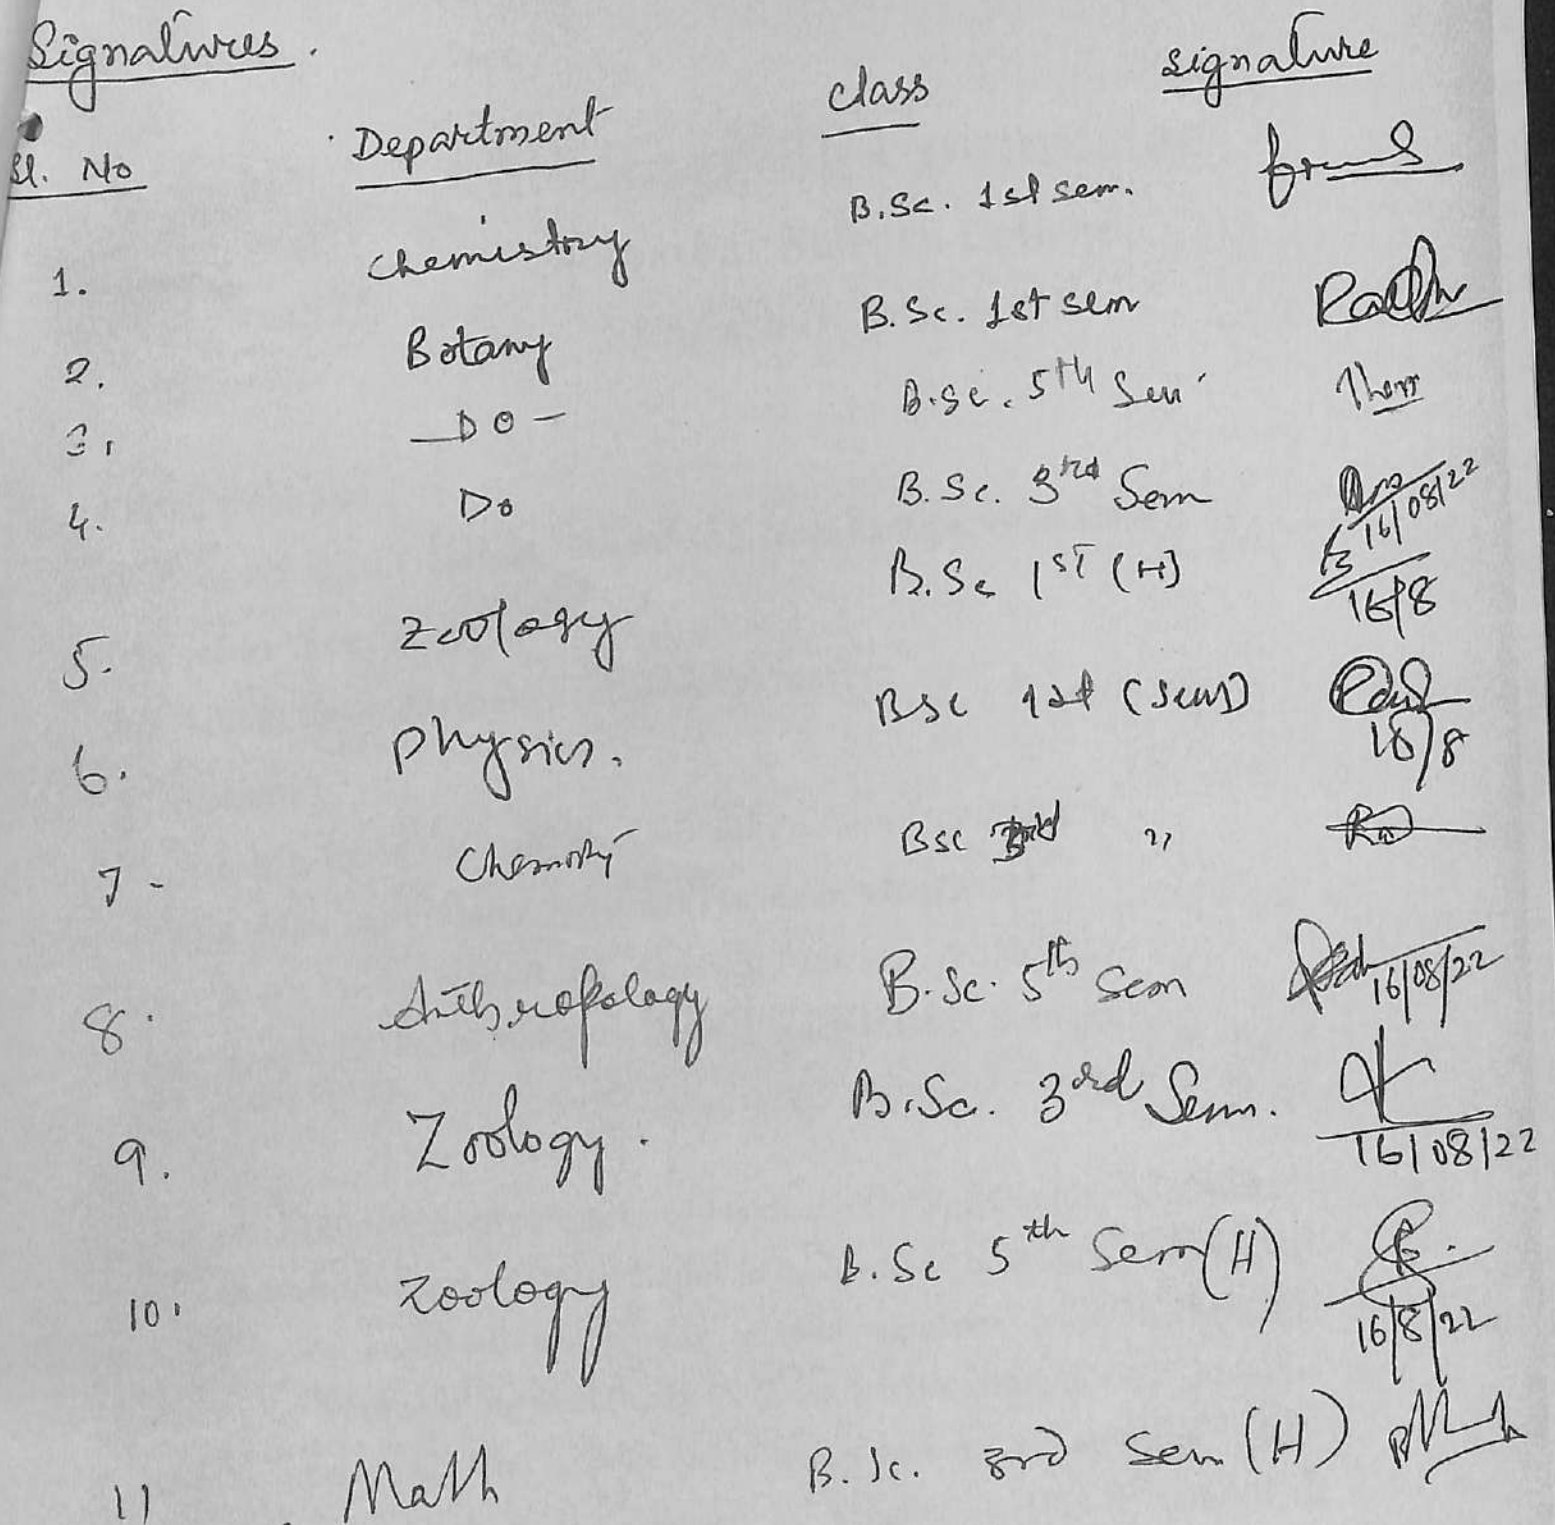 Signatures.
Sl. No Department class signature
1. Chemistry B.Sc. 1st sem.
2. Botany B.Sc. 1st sem
3. -DO- B.Sc. 5th Sem
4. Do B.Sc. 3rd Sem 16/08/22
5. Zoology B.Sc 1ST (H) 16/8
6. Physics. BSc 1st (Sem) 16/8
7- Chemistry BSc 3rd "
8. Anthropology B.Sc. 5th Sem 16/08/22
9. Zoology. B.Sc. 3rd Sem. 16/08/22
10. Zoology B.Sc 5th Sem (H) 16/8/22
11 Math B.Sc. 3rd Sem (H)